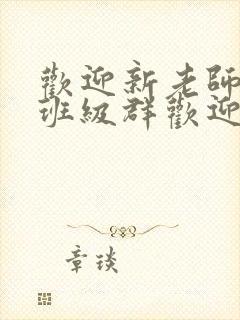 歡迎新老師
班級群歡迎
章琰